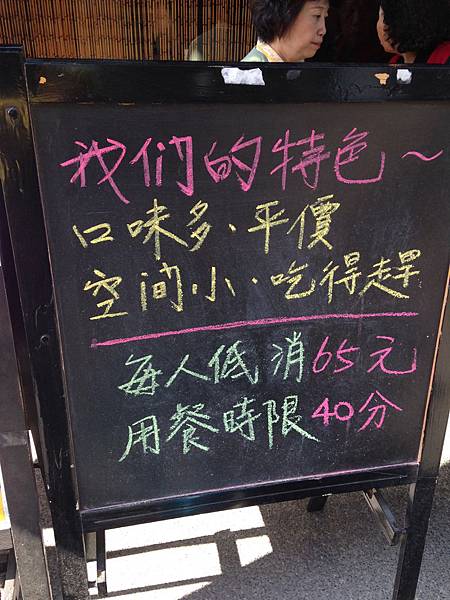 我们的特色～
口味多、平價
空间小、吃得趕
每人低消65元
用餐時限40分